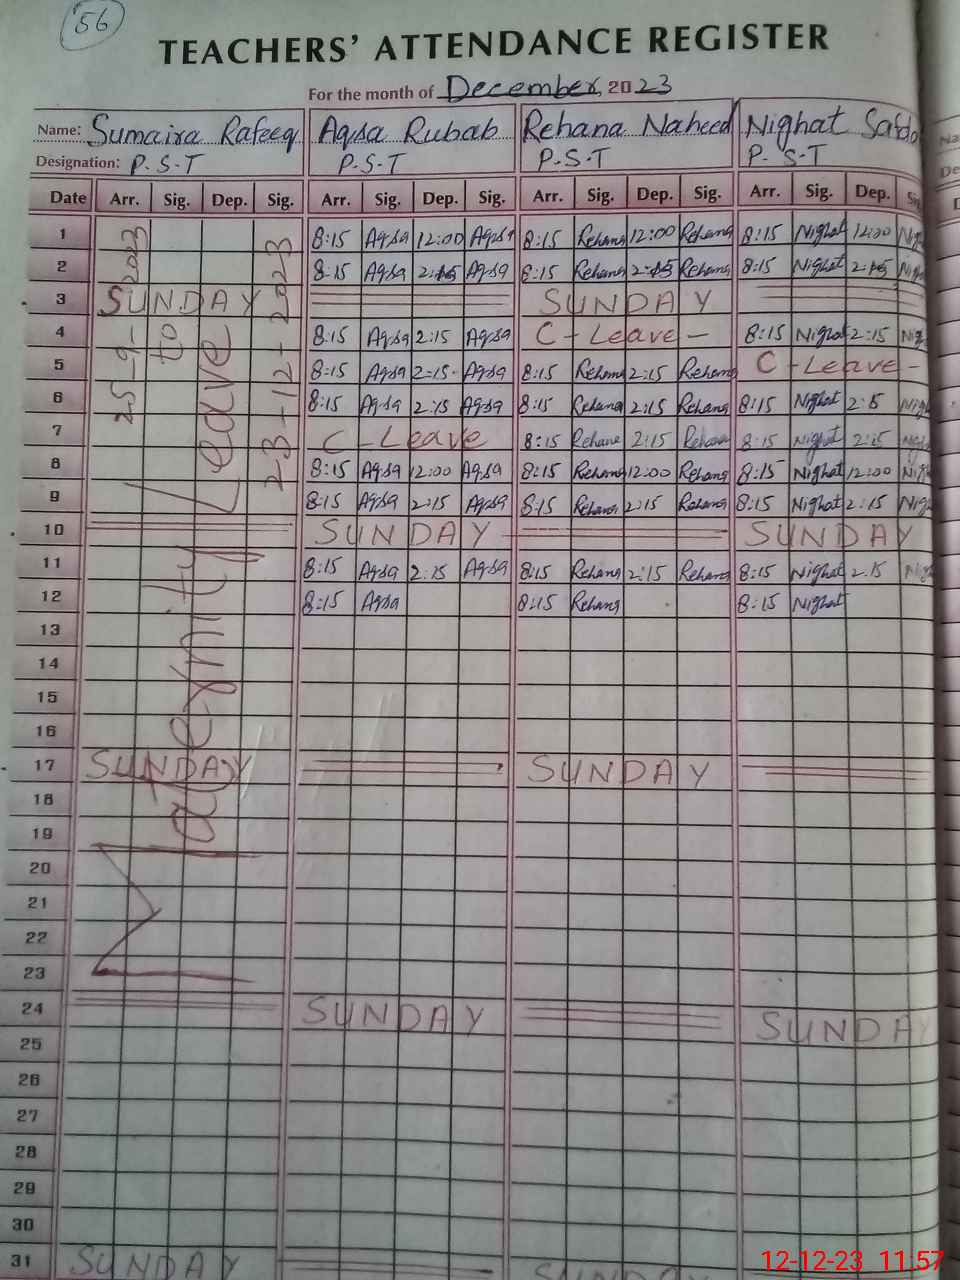 56
TEACHERS' ATTENDANCE REGISTER
For the month of December, 2023
Name: Sumaira Rafeeq Aqsa Rubab Rehana Naheed Nighat
Designation: P.S.T P.S.T P.S.T P.S.T
Date Arr. Sig. Dep. Sig. Arr. Sig. Dep. Sig. Arr. Sig. Dep. Sig. Arr. Sig. Dep.
1 8:15 Aqsa 12:00 Aqsa 8:15 Rehana 12:00 Rehana 8:15 Nighat 12:00
2 8:15 Aqsa 2:15 Aqsa 8:15 Rehana 2:15 Rehana 8:15 Nighat 2:15
3 SUNDAY SUNDAY
4 8:15 Aqsa 2:15 Aqsa C-Leave- 8:15 Nighat 2:15
5 8:15 Aqsa 2:15- Aqsa 8:15 Rehana 2:15 Rehana C-Leave-
6 8:15 Aqsa 2:15 Aqsa 8:15 Rehana 2:15 Rehana 8:15 Nighat 2:15
7 C-Leave 8:15 Rehana 2:15 Rehana 8:15 Nighat 2:15
8 8:15 Aqsa 12:00 Aqsa 8:15 Rehana 12:00 Rehana 8:15 Nighat 12:00
9 8:15 Aqsa 2:15 Aqsa 8:15 Rehana 2:15 Rehana 8:15 Nighat 2:15
10 SUNDAY SUNDAY
11 8:15 Aqsa 2:15 Aqsa 8:15 Rehana 2:15 Rehana 8:15 Nighat 2:15
12 8:15 Aqsa 8:15 Rehana 8:15 Nighat
13
14
15
16
17 SUNDAY SUNDAY
18
19
20
21
22
23
24 SUNDAY SUNDAY
25
26
27
28
29
30
31 SUNDAY SUNDAY
Maternity Leave
25-9-2023
to
23-12-2023
12-12-23 11:57